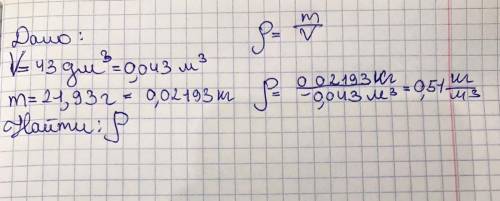 Дано:
V=43 дм³=0,043 м³
m=21,93г = 0,02193 кг
Найти: ρ
ρ= m/V
ρ= 0,02193 кг/0,043 м³ = 0,51 кг/м³